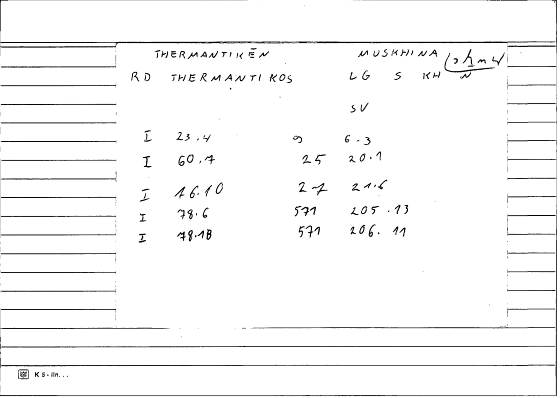 THERMANTIKĒN MUSKHINA
RD THERMANTIKOS LG S KH N
SV
I 23.4 9 6.3
I 60.7 25 20.1
I 76.10 27 21.6
I 78.6 571 205.13
I 78.18 571 206.11
K 5 - lin...